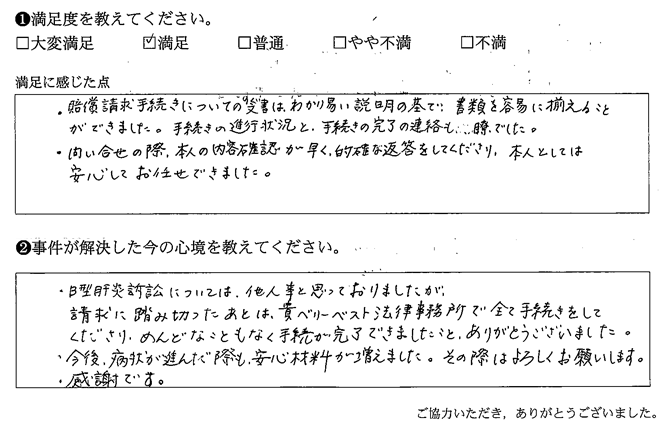 ❶満足度を教えてください。
□大変満足 ☑満足 □普通 □やや不満 □不満
満足に感じた点
・賠償請求手続きについての文書は、わかり易い説明の基で、書類を容易に揃えること
ができました。手続きの進行状況と、手続きの完了の連絡も、でした。
・問い合せの際、本人の内容確認が早く、的確な返答をしてくださり、本人としては
安心してお任せできました。
❷事件が解決した今の心境を教えてください。
・B型肝炎訴訟については、他人事と思っておりましたが、
請求に踏み切ったあとは、貴ベリーベスト法律事務所で全て手続きをして
くださり、めんどなこともなく手続が完了できましたこと、ありがとうございました。
・今後、病状が進んだ際も、安心材料が増えました。その際はよろしくお願いします。
・感謝です。
ご協力いただき，ありがとうございました。